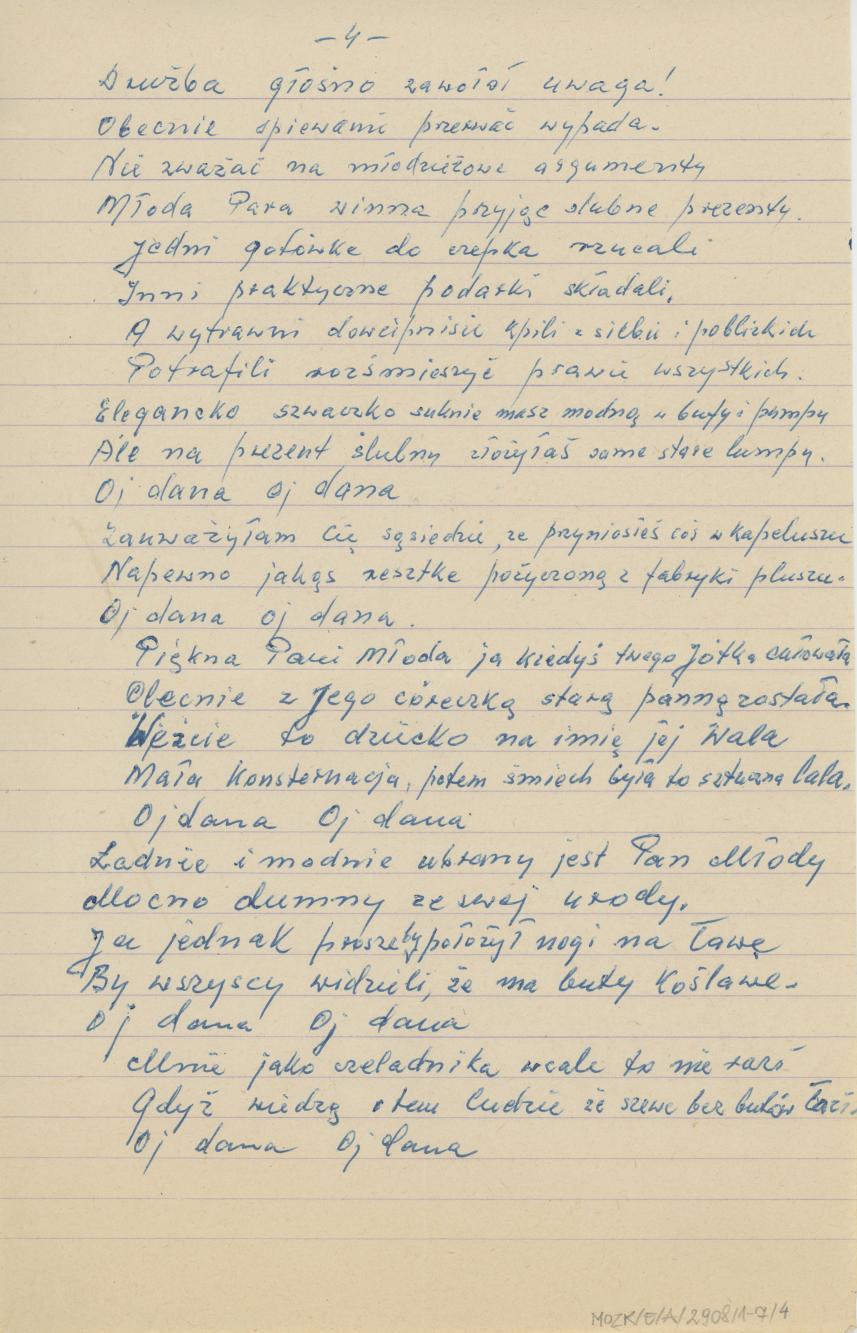 – 4 –
Drużba głośno zawołał uwaga!
Obecnie śpiewanie przerwać wypada.
Nie zważać na młodzieżowe argumenty
Młoda Para winna przyjąć ślubne prezenty.
Jedni gotówkę do czepka rzucali
Inni praktyczne podarki składali,
A wytrawni dowcipnisie kpili z siebie i pobliskich
Potrafili rozśmieszyć prawie wszystkich.
Elegancko szwaczko suknie masz modną a buty i pumpy
Ale na prezent ślubny złożyłaś same stare lumpy.
Oj dana oj dana
Zauważyłam Cię sąsiedzie, że przyniosłeś coś w kapeluszu
Napewno jakąś resztke pożyczoną z fabryki pluszu.
Oj dana oj dana.
Piękna Pani Młoda ja kiedyś twego Jótka całowała
Obecnie z Jego córeczką starą panną została.
Weźcie to dziecko na imię jej Wala
Mała konsternacja, potem śmiech była to sztuczna lala.
Oj dana Oj dana
Ładnie i modnie ubrany jest Pan Młody
Mocno dumny ze swej urody.
Ja jednak prosze by położył nogi na ławę
By wszyscy widzieli, że ma buty koślawe.
Oj dana Oj dana
Mnie jako czeladnika wcale to nie razi
Gdyż wiedzą o tem ludzie że szewc bez butów łazi.
Oj dana Oj dana
MOZK/E/A/2908/1-7/4